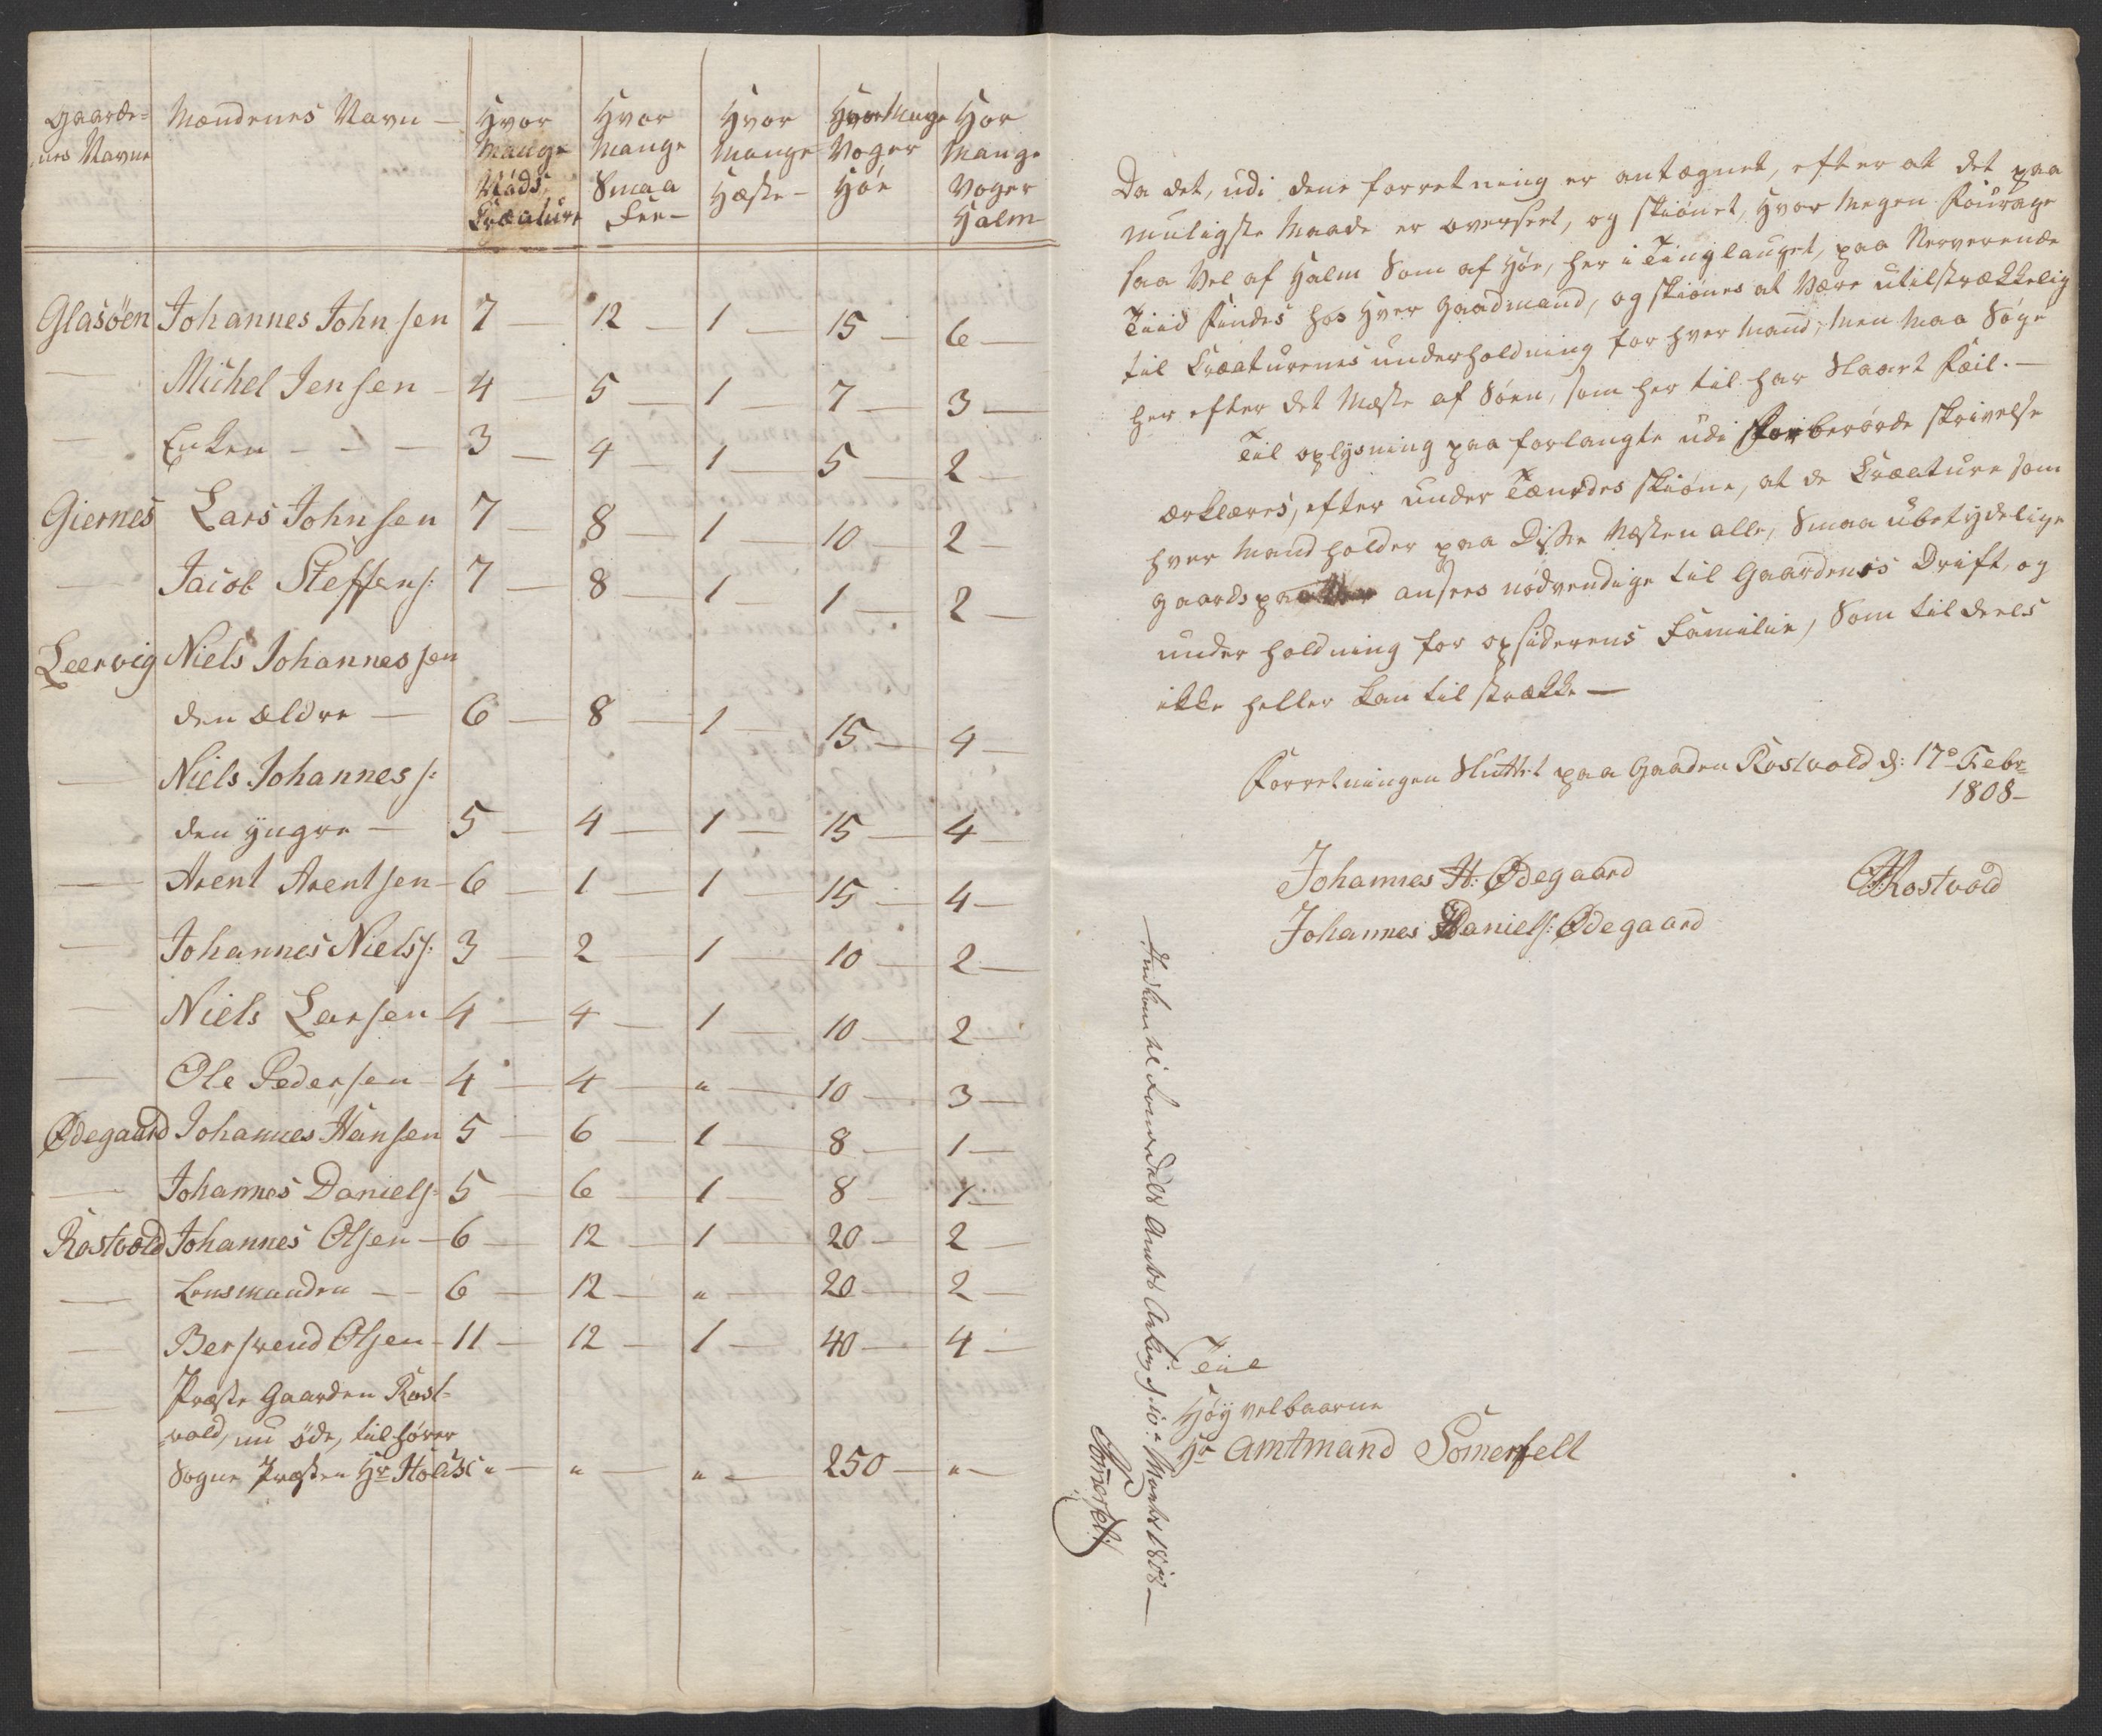 Gaarde= Mændenes Navn — Hvor Hvor Hvor Hvor Mange Hvor
nes Navne Mange Mange Mange Voger Mange
Nöds Smaa Hæste — Höe Voger
Creature Fee — Halm
Glasöen Johannes Johnsen 7 — 12 — 1 — 15 — 6 —
— Michel Jensen — 4 — 5 — 1 — 7 — 3 —
— Enken — — — 3 — 4 — 1 — 5 — 2 —
Giernes Lars Johnsen 7 — 8 — 1 — 10 — 2 —
— Jacob Steffens: 7 — 8 — 1 — 1 — 2 —
Leervig Niels Johannessen
den ældre — 6 — 8 — 1 — 15 — 4 —
— Niels Johanness:
den yngre — 5 — 4 — 1 — 15 — 4 —
— Arent Arentsen — 6 — 1 — 1 — 15 — 4 —
— Johannes Niels: 3 — 2 — 1 — 10 — 2 —
— Niels Larsen 4 — 4 — 1 — 10 — 2 —
— Ole Pedersen 4 — 4 — " — 10 — 3 —
Ødegaard Johannes Hansen 5 — 6 — 1 — 8 — 1 —
— Johannes Daniels: 5 — 6 — 1 — 8 — 1 —
Rostvold Johannes Olsen — 6 — 12 — 1 — 20 — 2 —
— Lensmanden — — 6 — 12 — " — 20 — 2 —
— Bersvend Olsen — 11 — 12 — 1 — 40 — 4 —
— Præste Gaarden Rost=
vold, nu öde, tilhörer
Sogne Præsten Hr Holst " — " — " — 250 — " —
Da det, udi dene forretning er antægnet, efter at det paa
muligste Maade er overseet, og skiönet, Hvor Megen Fourage
saa Vel af Halm Som af Höe, her i Tinglauget, paa Nerverende
Tiid Findes hos Hver Gaadmand, og skiönes at Være utilstrækkelig
til Creaturenes underholdning for hver Mand, Men Maa Söge
her efter det Mæste af Söen, som her til har Slaaet Feil. —
Til oplysning paa forlangte udi Forberörde skrivelse
erklæres, efter under skiöne, at de Creature som
hver Mand holder paa Disse Næsten alle, Smaa ubetydelige
gaardsparter ansees nödvendige til Gaardenes Drift, og
under holdning for opsiderens Familie, Som til deels
ikke heller kan til strække —
Forretningen Sluttet paa Gaaden Rostvold d: 17de Febr.
1808 —
Johannes H: Ødegaard Rostvold
Johannes Daniels: Ødegaard
Indkom til Amts d. 10de Marti 1808 —
Sommerfelt
Til
Höy velbaarne
Hr Amtmand Somerfelt